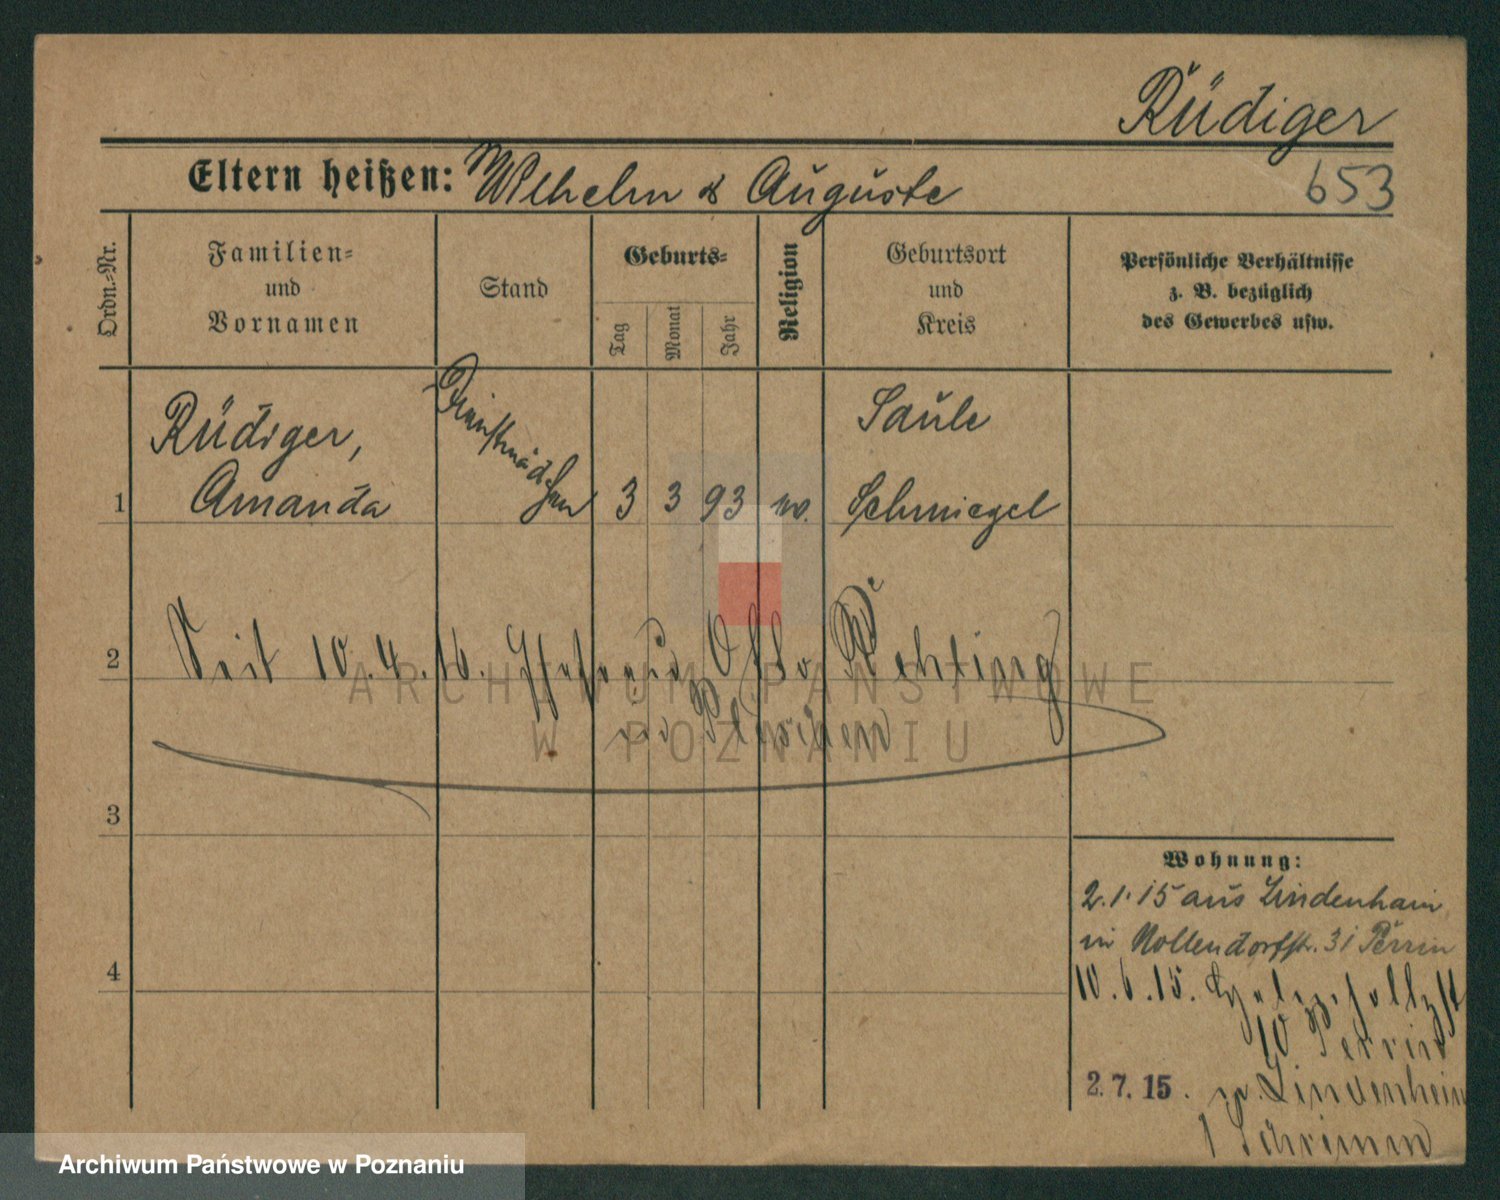 Rüdiger
Eltern heißen: Wilhelm & Auguste
653
Ordn.-Nr.
Familien-
und
Vornamen
Stand
Geburts-
Tag
Monat
Jahr
Religion
Geburtsort
und
Kreis
Persönliche Verhältnisse
z. B. bezüglich
des Gewerbes usw.
1
Rüdiger,
Amanda
Dienstmädchen
3 3 93 w.
Saule
Schmiegel
2
Seit 10.4.16. Ehefrau Otto Wehling
in
3
4
Wohnung:
2.1.15 aus Lindenhain
in Nollendorfstr. 31 Perrin
10.6.15.
10 Perrin
2.7.15. n. Lindenhein
Schrimm
ARCHIWUM PAŃSTWOWE
W POZNANIU
Archiwum Państwowe w Poznaniu